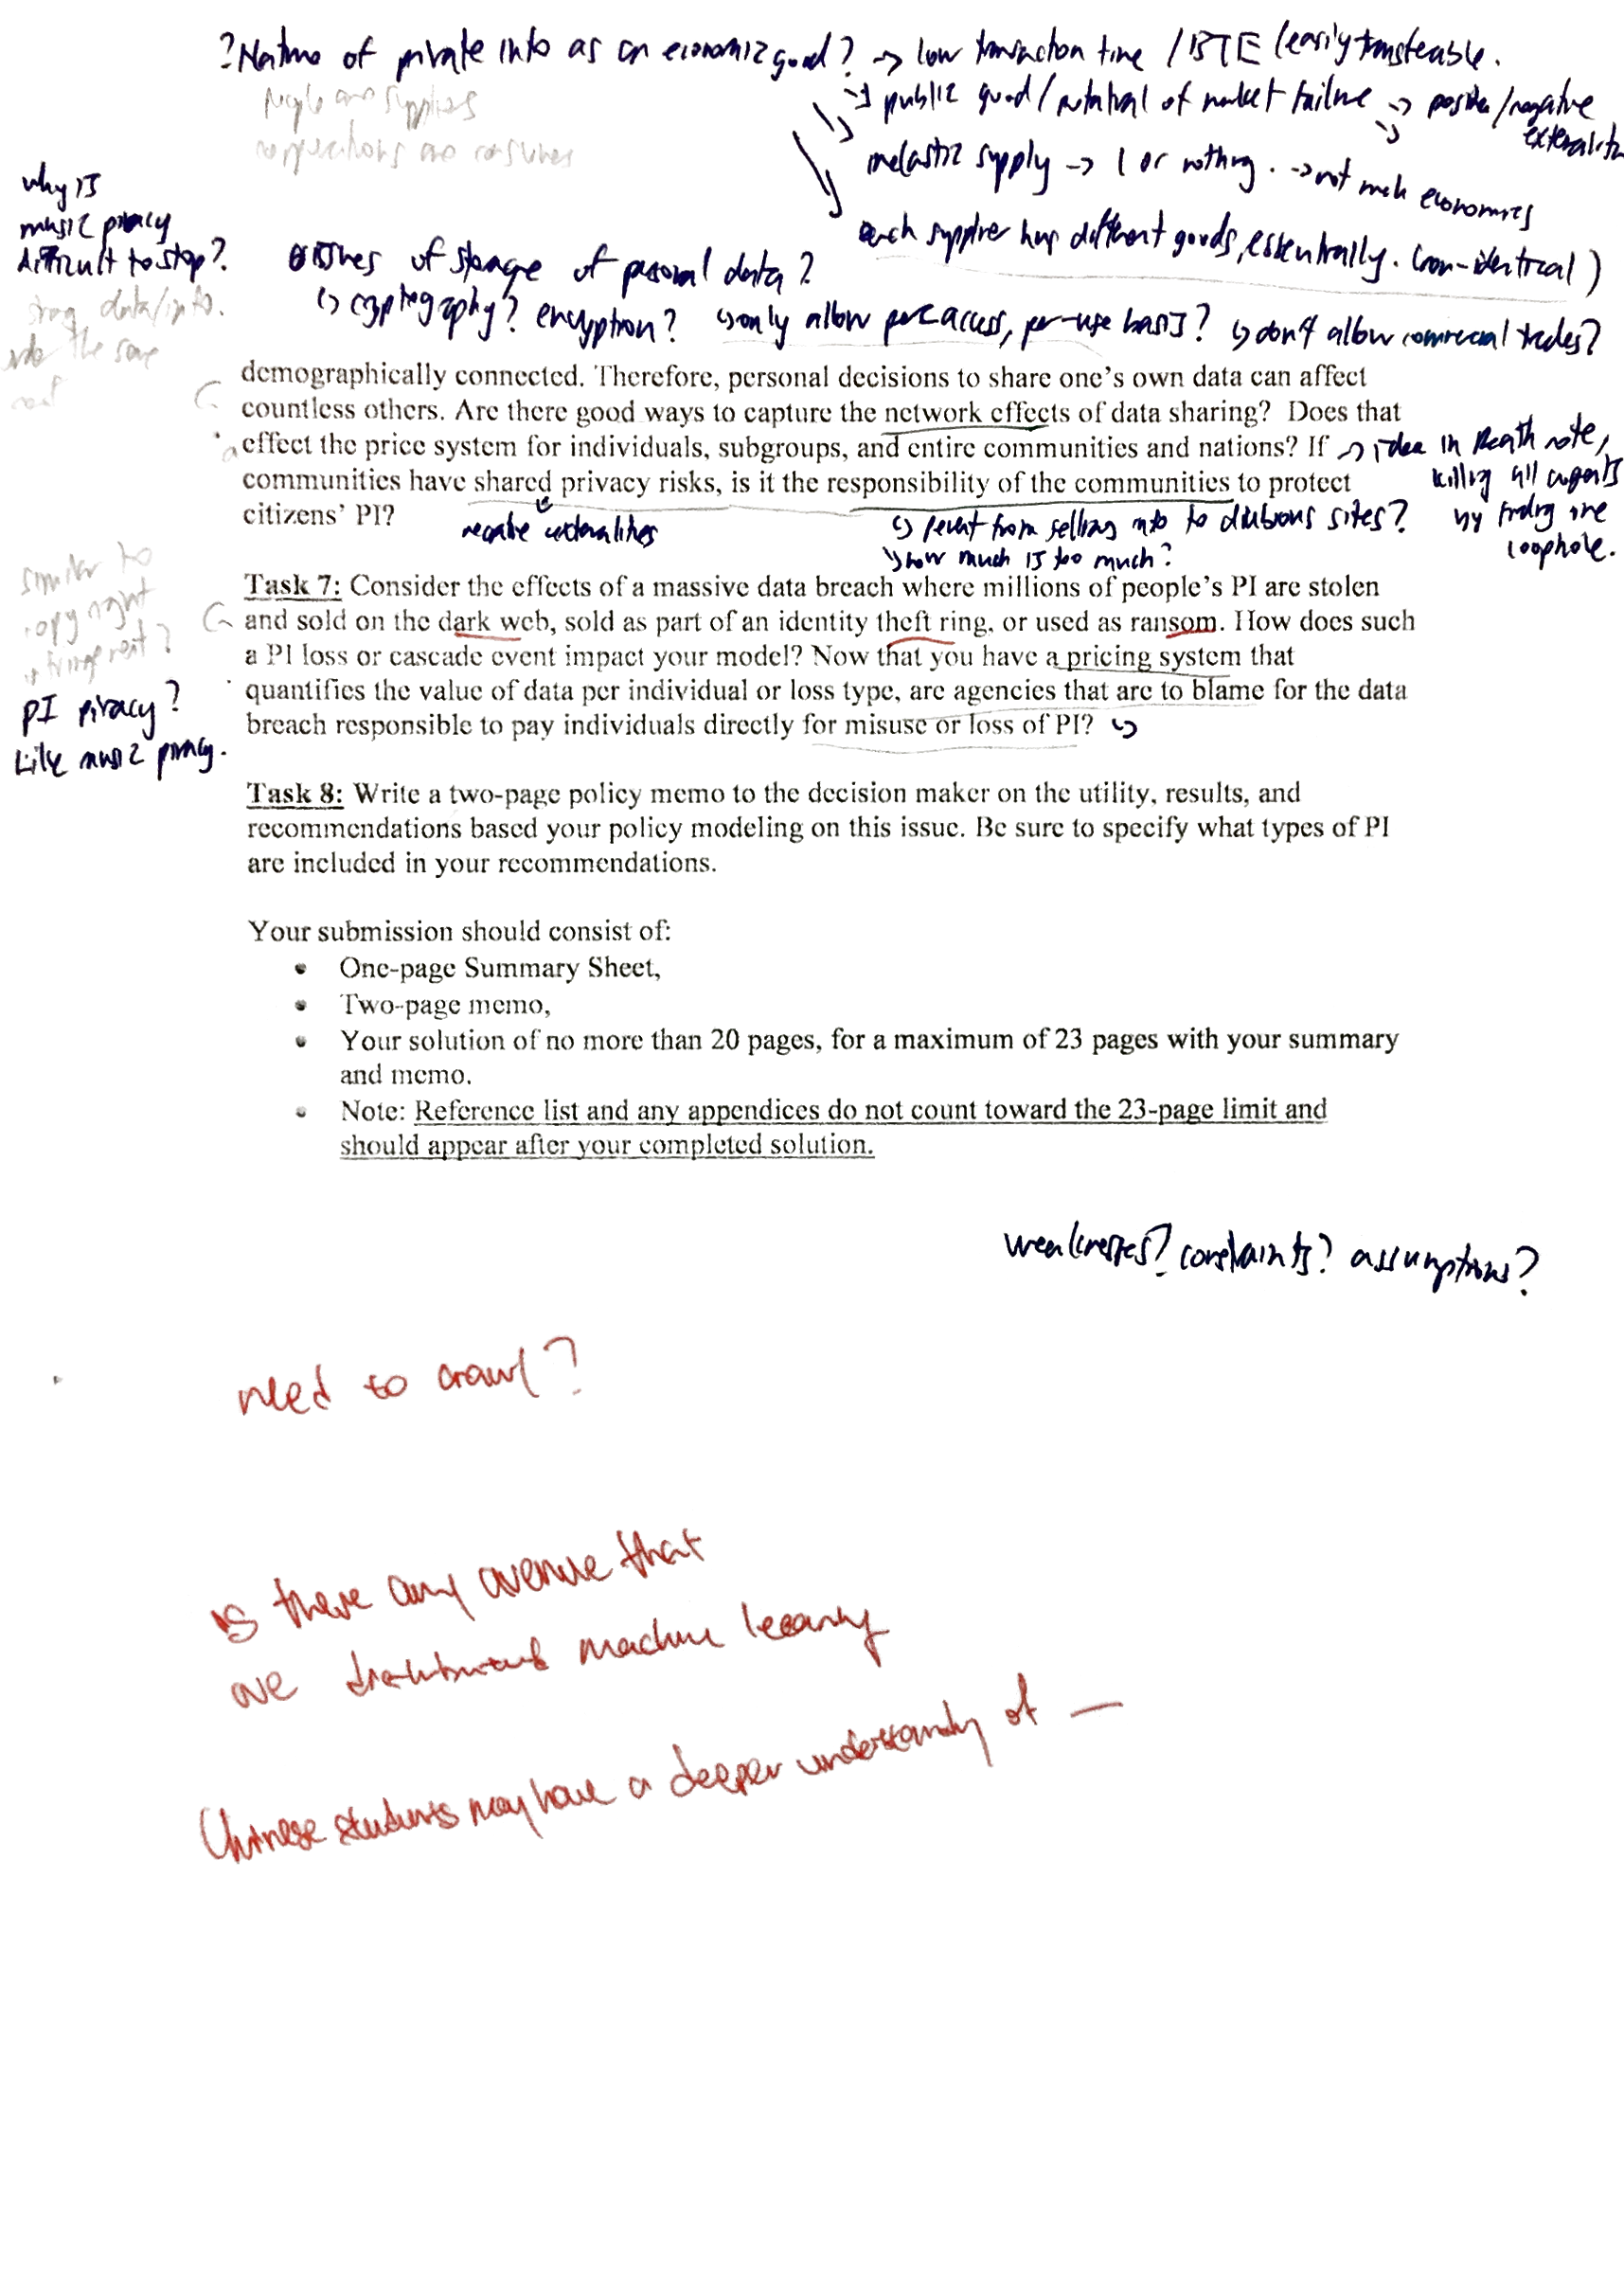 ?Nature of private info as an economic good? → low transaction time / (easily transferable.
people are suppliers
corporations are consumers
→ public good / potential of market failure → positive/negative
externalities
inelastic supply → 1 or nothing. → not much economics
each supplier has different goods, essentially. (non-identical)
why is
music piracy
difficult to stop?
data/info.
the same
issues of storage of personal data?
↳ cryptography? encryption? ↳ only allow per access, per-use basis? ↳ don't allow commercial trades?
demographically connected. Therefore, personal decisions to share one's own data can affect
countless others. Are there good ways to capture the network effects of data sharing? Does that
effect the price system for individuals, subgroups, and entire communities and nations? If
communities have shared privacy risks, is it the responsibility of the communities to protect
citizens' PI?
→ idea in Death note,
killing all agents
by finding one
loophole.
negative externalities
↳ prevent from selling info to dubious sites?
↳ how much is too much?
similar to
copyright
infringement?
PI piracy?
Like music piracy.
Task 7: Consider the effects of a massive data breach where millions of people's PI are stolen
and sold on the dark web, sold as part of an identity theft ring, or used as ransom. How does such
a PI loss or cascade event impact your model? Now that you have a pricing system that
quantifies the value of data per individual or loss type, are agencies that are to blame for the data
breach responsible to pay individuals directly for misuse or loss of PI? ↳
Task 8: Write a two-page policy memo to the decision maker on the utility, results, and
recommendations based your policy modeling on this issue. Be sure to specify what types of PI
are included in your recommendations.
Your submission should consist of:
• One-page Summary Sheet,
• Two-page memo,
• Your solution of no more than 20 pages, for a maximum of 23 pages with your summary
and memo.
• Note: Reference list and any appendices do not count toward the 23-page limit and
should appear after your completed solution.
weaknesses? constraints? assumptions?
need to crawl?
is there any avenue that
we machine learning
Chinese students may have a deeper understanding of —